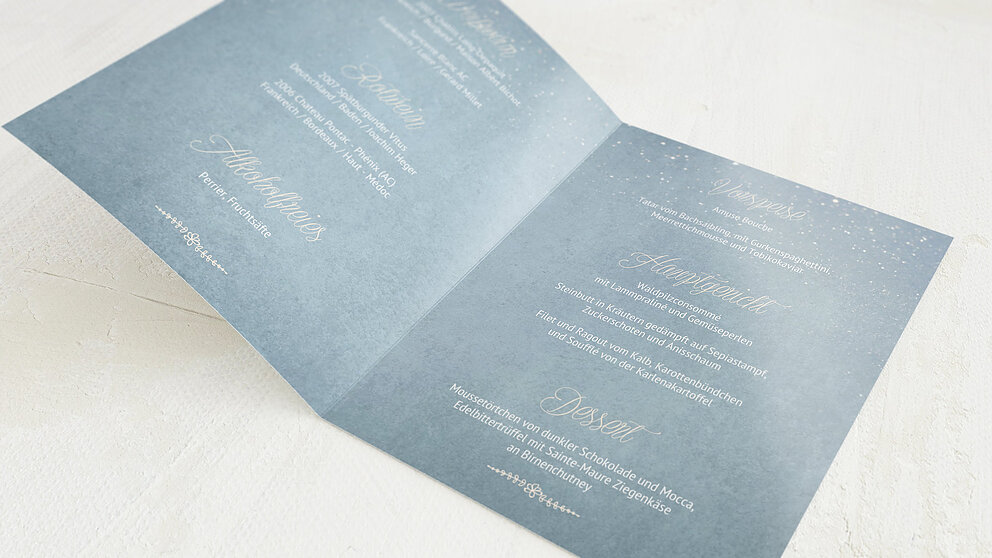 Weißwein
Frankreich / Burgund / Maison Albert Bichot
Sancerre Blanc AC
Frankreich / Loire / Gerard Millet
Rotwein
2007 Spätburgunder Vitus
Deutschland / Baden / Joachim Heger
2006 Chateau Pontac - Phénix (AC)
Frankreich / Bordeaux / Haut - Medoc
Alkoholfreies
Perrier, Fruchtsäfte
Vorspeise
Amuse Bouche
Tatar vom Bachsaibling, mit Gurkenspaghettini,
Meerrettichmousse und Tobikokaviar
Hauptgericht
Waldpilzconsommé
mit Lammpraliné und Gemüseperlen
Steinbutt in Kräutern gedämpft auf Sepiastampf,
Zuckerschoten und Anisschaum
Filet und Ragout vom Kalb, Karottenbündchen
und Soufflé von der Karlenakartoffel
Dessert
Moussetörtchen von dunkler Schokolade und Mocca,
Edelbittertrüffel mit Sainte-Maure Ziegenkäse
an Birnenchutney